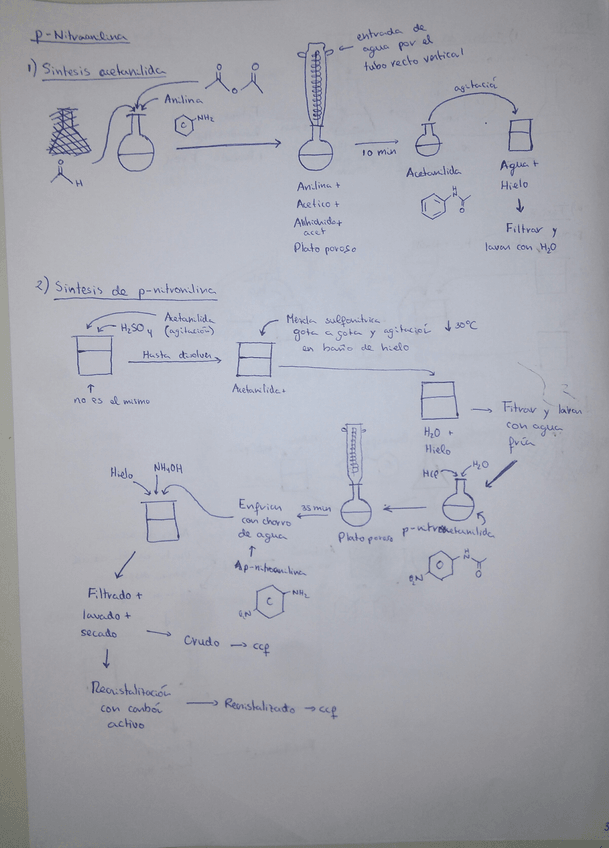 p-Nitroanilina
1) Síntesis acetanilida
entrada de
agua por el
tubo recto vertical
O O
O
Anilina
NH2
O
H
10 min
agitació
Anilina +
Acético +
Anhídrido +
acet
Plato poroso
Acetanilida
H
N
O
Agua +
Hielo
Filtrar y
lavar con H2O
2) Síntesis de p-nitroanilina
Acetanilida
H2SO4 (agitación)
Hasta disolver
no es el mismo
Mezcla sulfonítrica
gota a gota y agitación ↓30ºC
en baño de hielo
Acetanilida+
H2O +
Hielo
Fitrar y lavar
con agua
fría
Hielo
NH4OH
HCl
H2O
p-nitroacetanilida
O2N
H
N
O
Plato poroso
35 min
Enfrian
con chorro
de agua
p-nitroanilina
O2N
NH2
Filtrado +
lavado +
secado
Crudo → ccf
Recristalización
con carbón
activo
Recristalizado → ccf